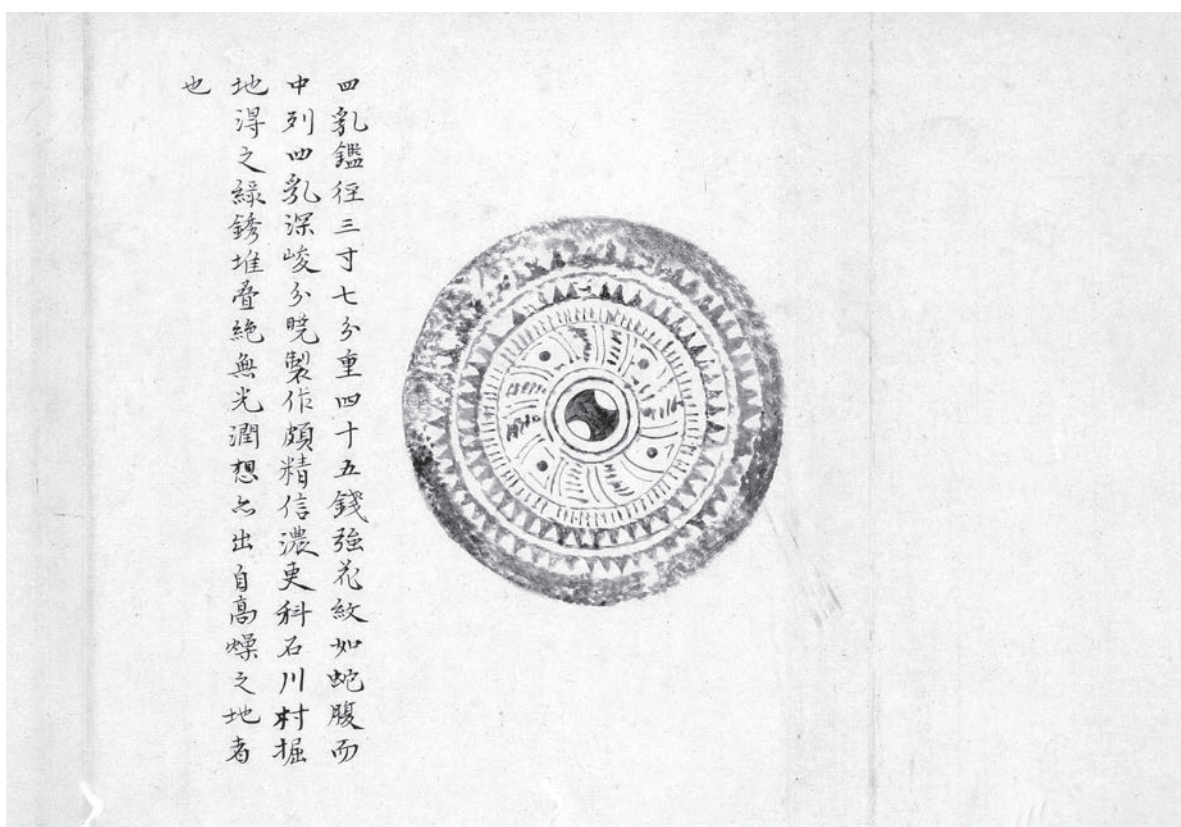 四乳鑑径三寸七分重四十五錢強花紋如蛇腹而
中列四乳深峻分暁製作頗精信濃更科石川村掘
地淂之緑銹堆疊絶無光潤想亦出自高燥之地者
也